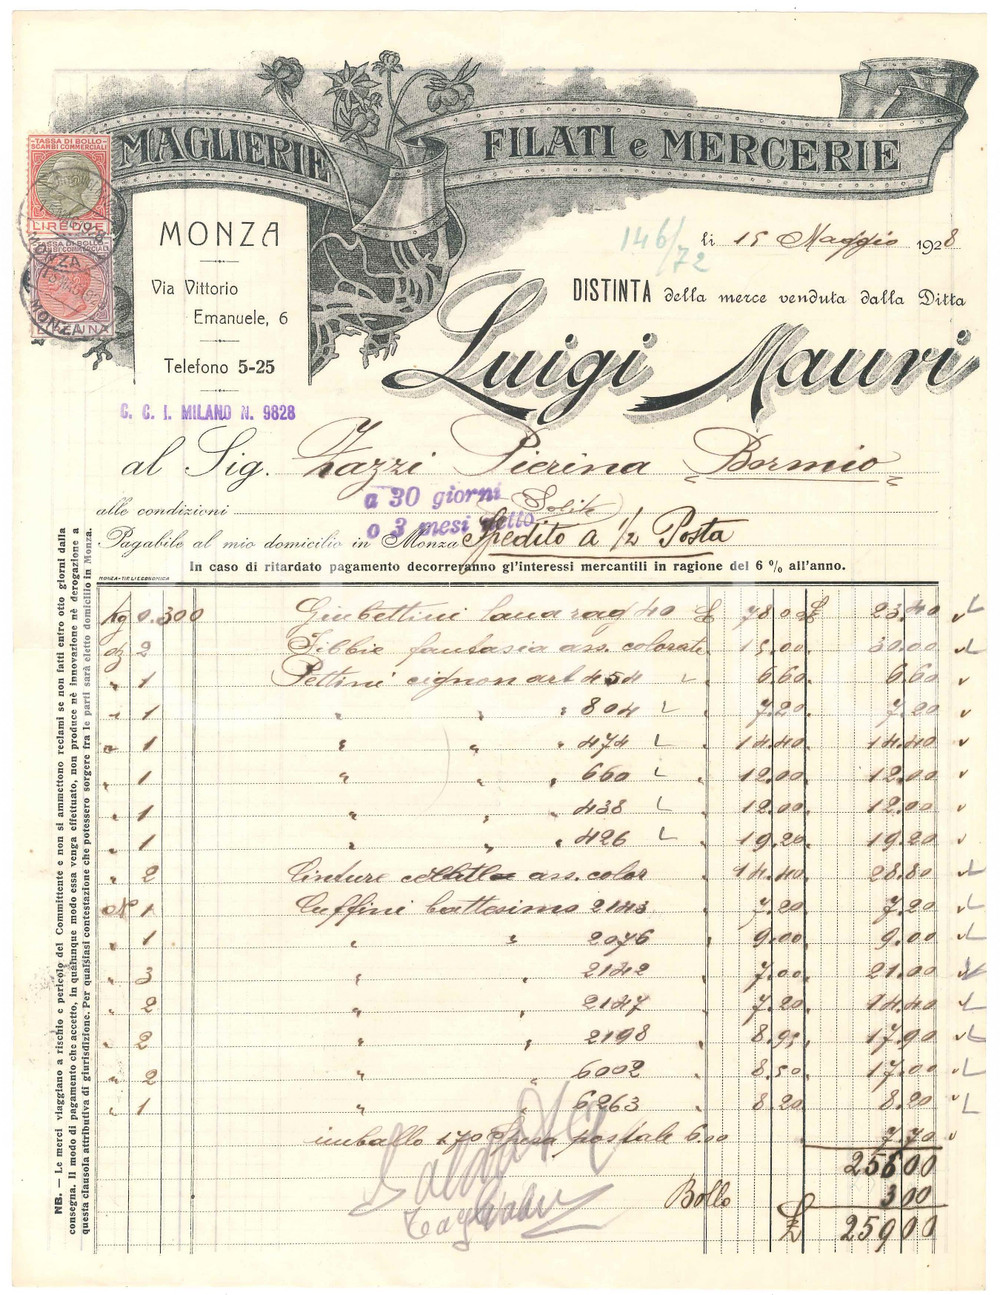 MAGLIERIE FILATI e MERCERIE
TASSA DI BOLLO
SCAMBI COMMERCIALI
LIRE DUE
TASSA DI BOLLO
MONZA
MONZA
Via Vittorio
Emanuele, 6
Telefono 5-25
C. C. I. MILANO N. 9828
146/72
li 15 Maggio 1928
DISTINTA della merce venduta dalla Ditta
Luigi Mauri
al Sig. Zazzi Pierina Bormio
a 30 giorni
alle condizioni Solite
o 3 mesi netto
Pagabile al mio domicilio in Monza Spedito a 1/2 Posta
In caso di ritardato pagamento decorreranno gl'interessi mercantili in ragione del 6 % all'anno.
MONZA-TIP. L'ECONOMICA
Kg 0.300 Giubettini lana rag 40 £ 78.00 £ 23.40
dz 2 Fibbie fantasia ass. colorate 15.00 30.00
" 1 Pettini cignon art 454 6.60 6.60
" 1 " " " 804 7.20 7.20
" 1 " " " 474 14.40 14.40
" 1 " " " 660 12.00 12.00
" 1 " " " 438 12.00 12.00
" 1 " " " 426 19.20 19.20
" 2 Cinture ass. color 14.40 28.80
N 1 Cuffini battesimo 2143 7.20 7.20
" 1 " " 2076 9.00 9.00
" 3 " " 2142 7.00 21.00
" 2 " " 2147 7.20 14.40
" 2 " " 2198 8.95 17.90
" 2 " " 6002 8.50 17.00
" 1 " " 6263 8.20 8.20
imballo 1.70 Spesa postale 6.00 7.70
25600
Bollo 300
£ 25900
NB. — Le merci viaggiano a rischio e pericolo del Committente e non si ammettono reclami se non fatti entro otto giorni dalla
consegna. Il modo di pagamento che accetto, in qualunque modo essa venga effettuato, non produce nè innovazione nè derogazione a
questa clausola attributiva di giurisdizione. Per qualsiasi contestazione che potessero sorgere fra le parti sarà eletto domicilio in Monza.